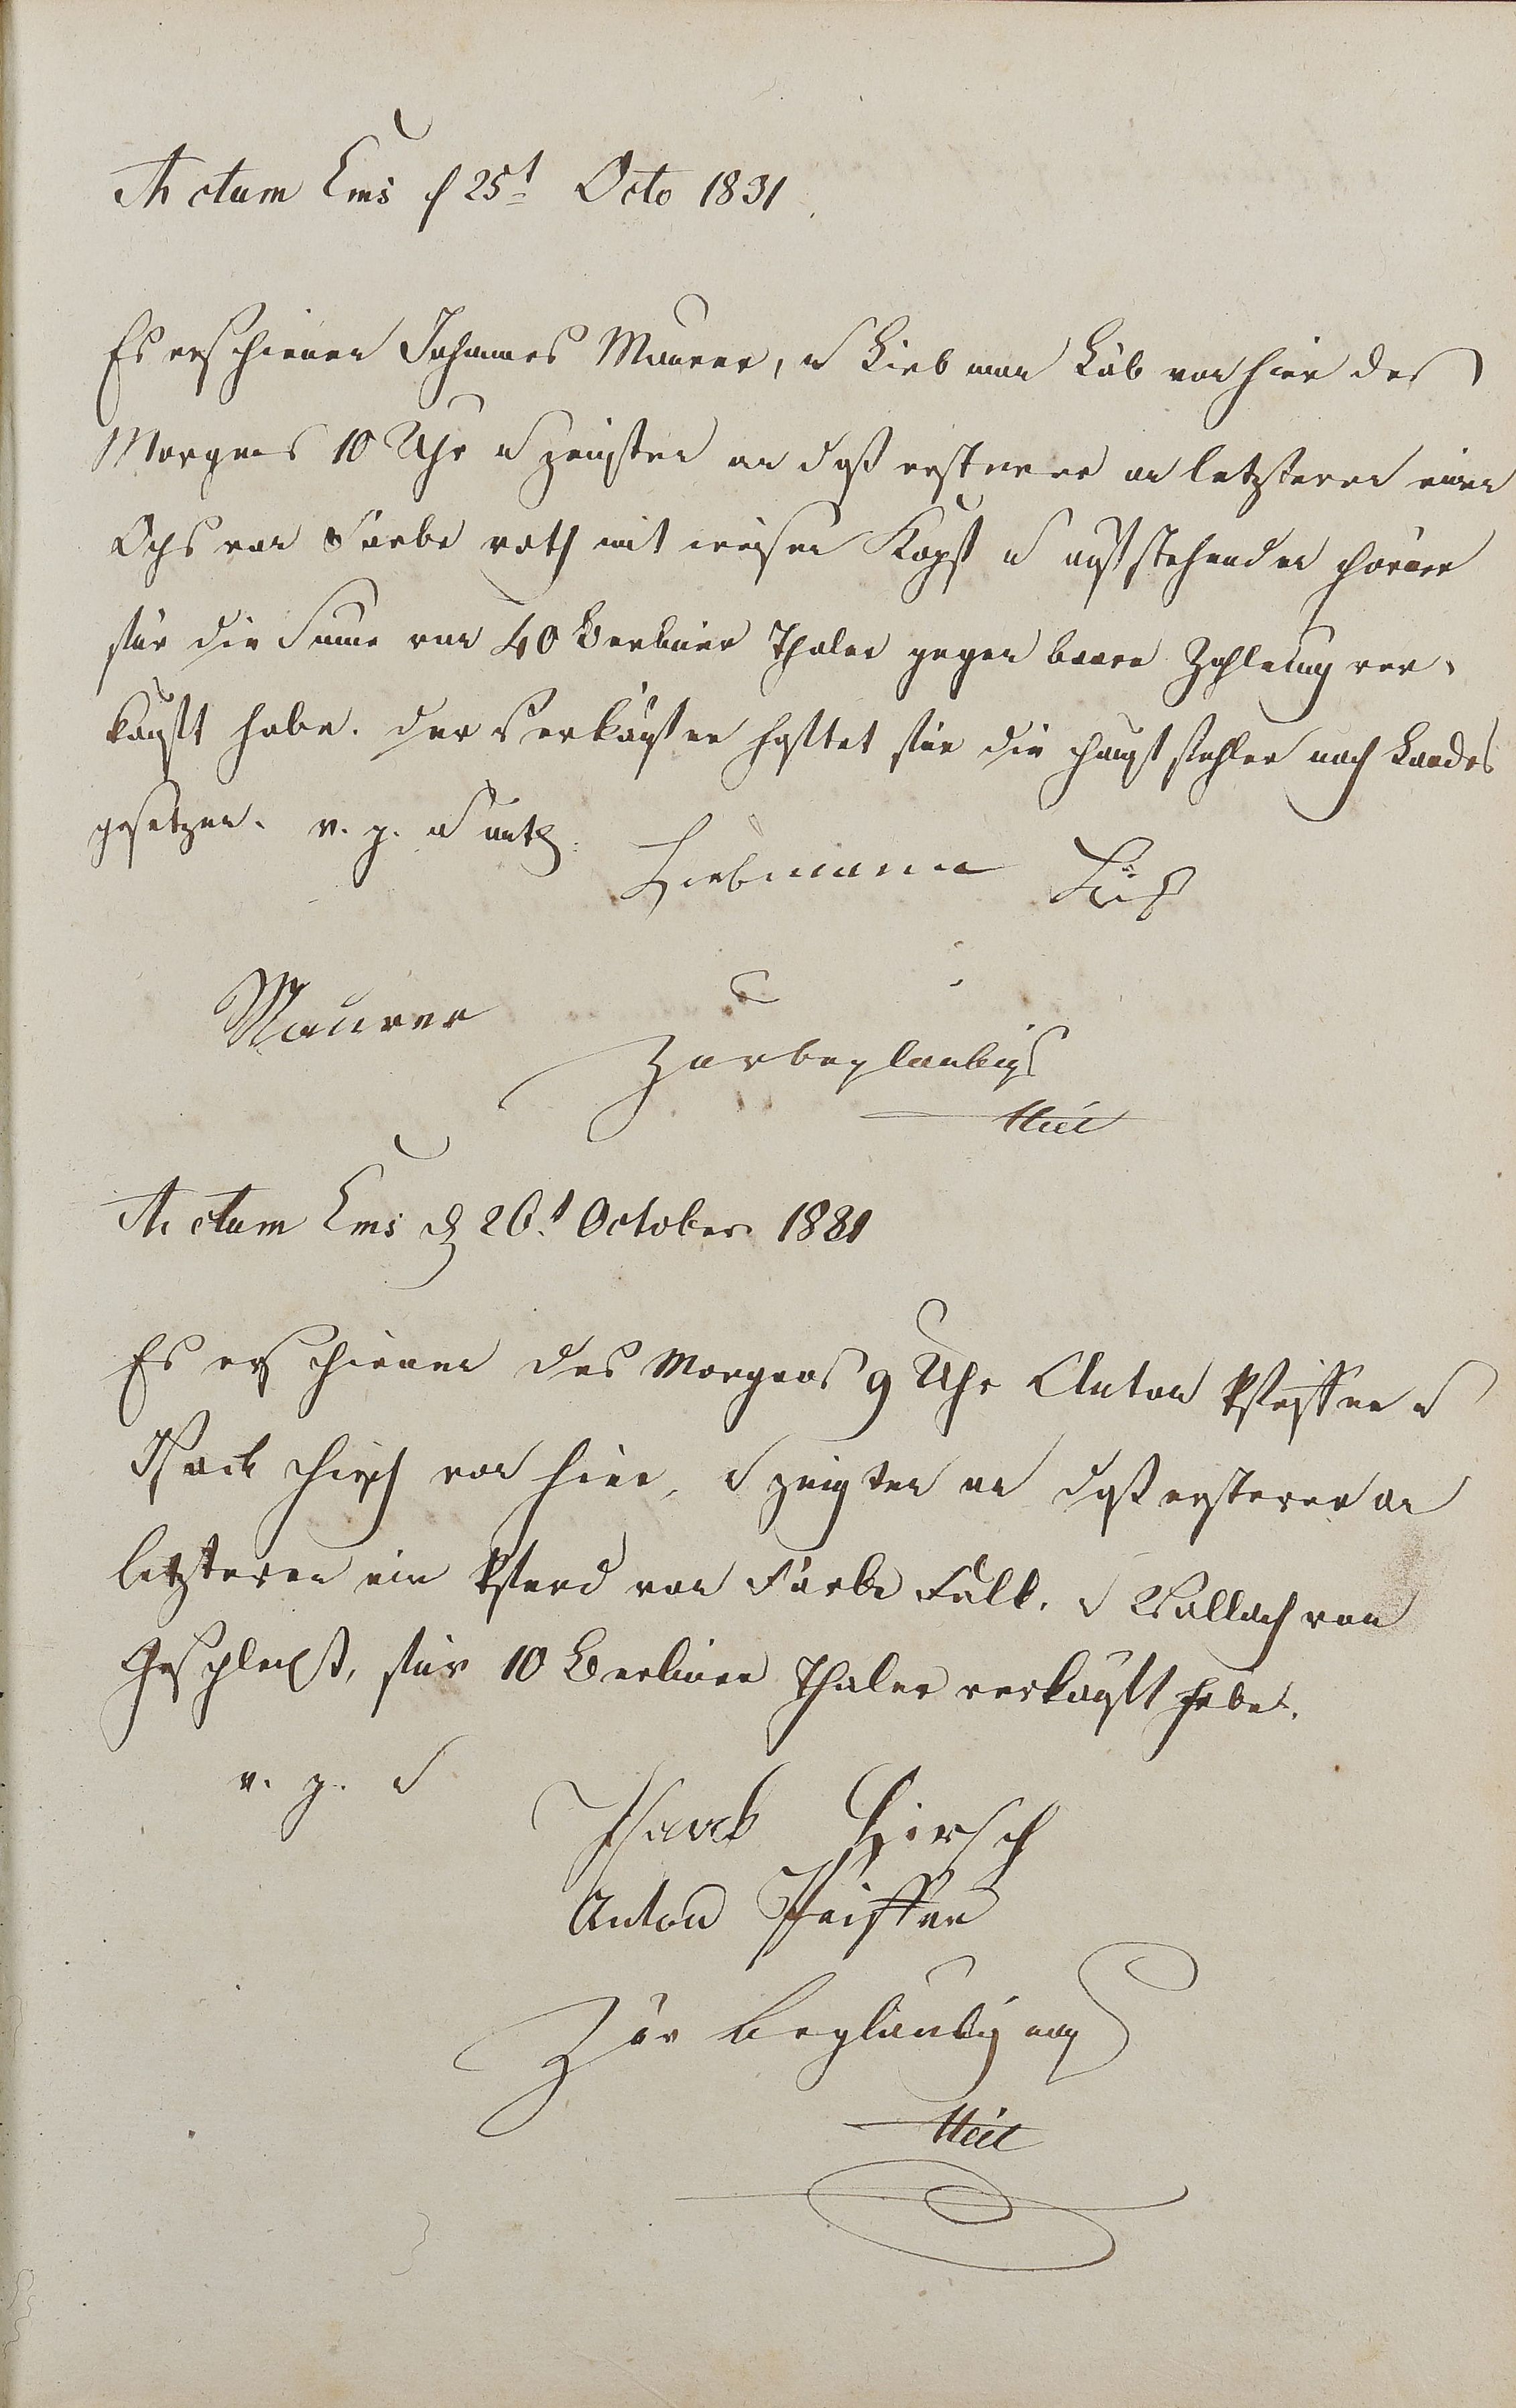 Actum Ems d 25t Octo 1831
Es erschienen Johannes Maurer, u Liebman Löb von hier des
Morgens 10 Uhr u zeigten an daß ersterer an letzteren einen
Ochs von Farbe roth mit weisen Kopf u aufstehenden Hörner
für die Sume von 40 Berliner Thaler gegen baare Zahlung ver-
kauft habe. der Verkäufer haftet für die Hauptfehler nach Landes
gesetzen. v. g. u
Liebmann
Maurer
Zur beglaubigg
Actum Ems d 26t October 1831
Es erschienen des Morgens 9 Uhr Anton Pfeiffer u
Isack Hirsch von hier, u zeigten an daß ersterer an
letzteren ein Pferd von Farbe Falb. u Wallach von
Geschlecht, für 10 Berliner Thaler verkauft habe.
v. g. u
Isaack Hirsch
Anton Pfeiffer
Zur Beglaubigung